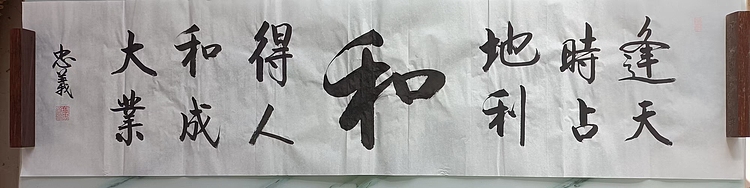 逢天
時占
地利
和
得人
和成
大業
忠義